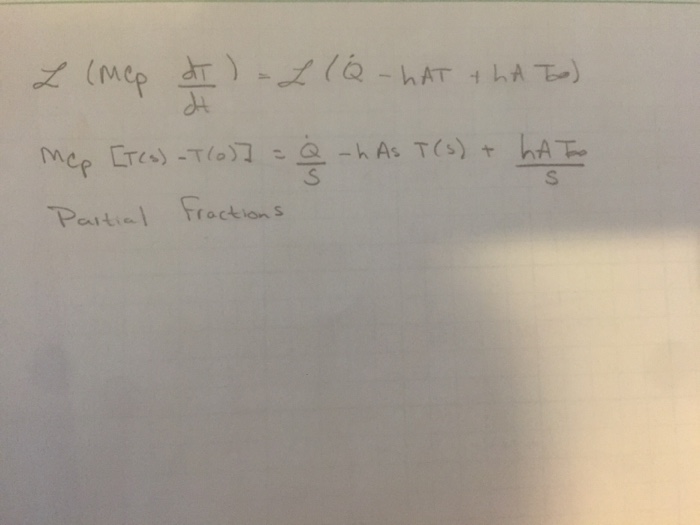 ℒ (mcp dT/dt) = ℒ (Q̇ - hAT + hA T∞)
mcp [T(s) - T(0)] = Q̇/s - hAs T(s) + hAT∞/s
Partial Fractions